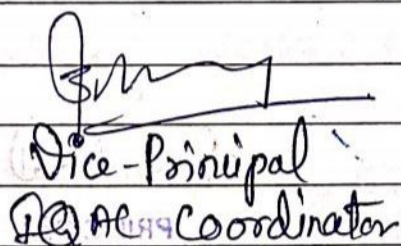 Vice-Principal
IQAC Coordinator